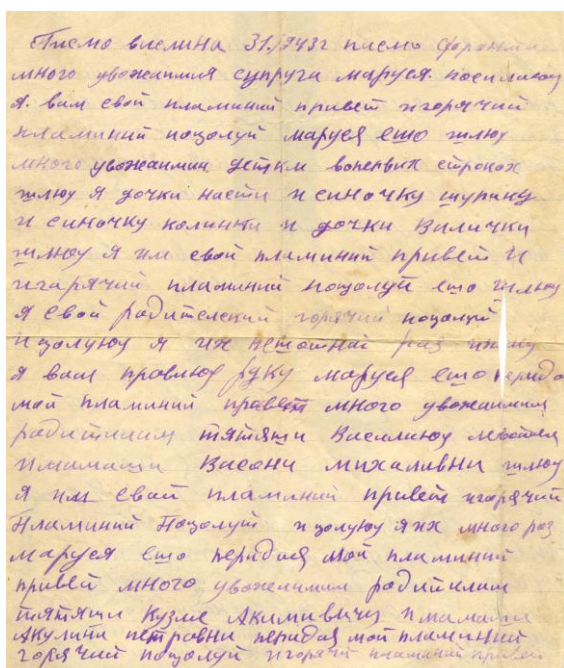 Писмо висмина 31./943г писмо форонта
много увожаимия супруга маруся. посилаюу
я. вам свой пламиний привет игорячий
пламиний поцолуй маруся ешо шлюу
много увожаимим деткм воперьвих строкох
шлюу я дочки насти и синочку шурику
и синочку колинки и дочки Вилички
шлюу я им свой пламиний привет и
игарячий пламиний поцолуй ешо шлюу
я свой родителский горячий поцолуй
ицолуюу я их несотний раз
я вам провлюу руку маруся ешо передо
мой пламиний привет много увожаимим
родитилаим тятяши Василиюу
имамаши Васени михаливни шлюу
я им свай пламиний привет игорячий
Пламиний Поцолуй ицолуюу я их много раз
маруся ешо передая мой пламиний
привет много увожаимим родитилам
тятяши Кузме Акимивичу имамаши
Акулини петровни передая мой пламиний
горячий поцолуй игорячй пламиний привет